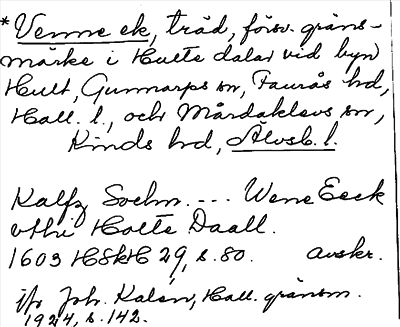 *Venne ek, träd, försv. gräns-
märke i Hulte dalar vid byn
Hult, Gunnarps sn, Faurås hd,
Hall. l., och Mårdaklevs sn,
Kinds hd, Älvsb. l.
Kalfz Soehn. --- Wene Eeck
vthi Holte Daall.
1603 HSkH 29, s. 80. avskr.
jfr Joh. Kalén, Hall. gränsm.
1924, s. 142.